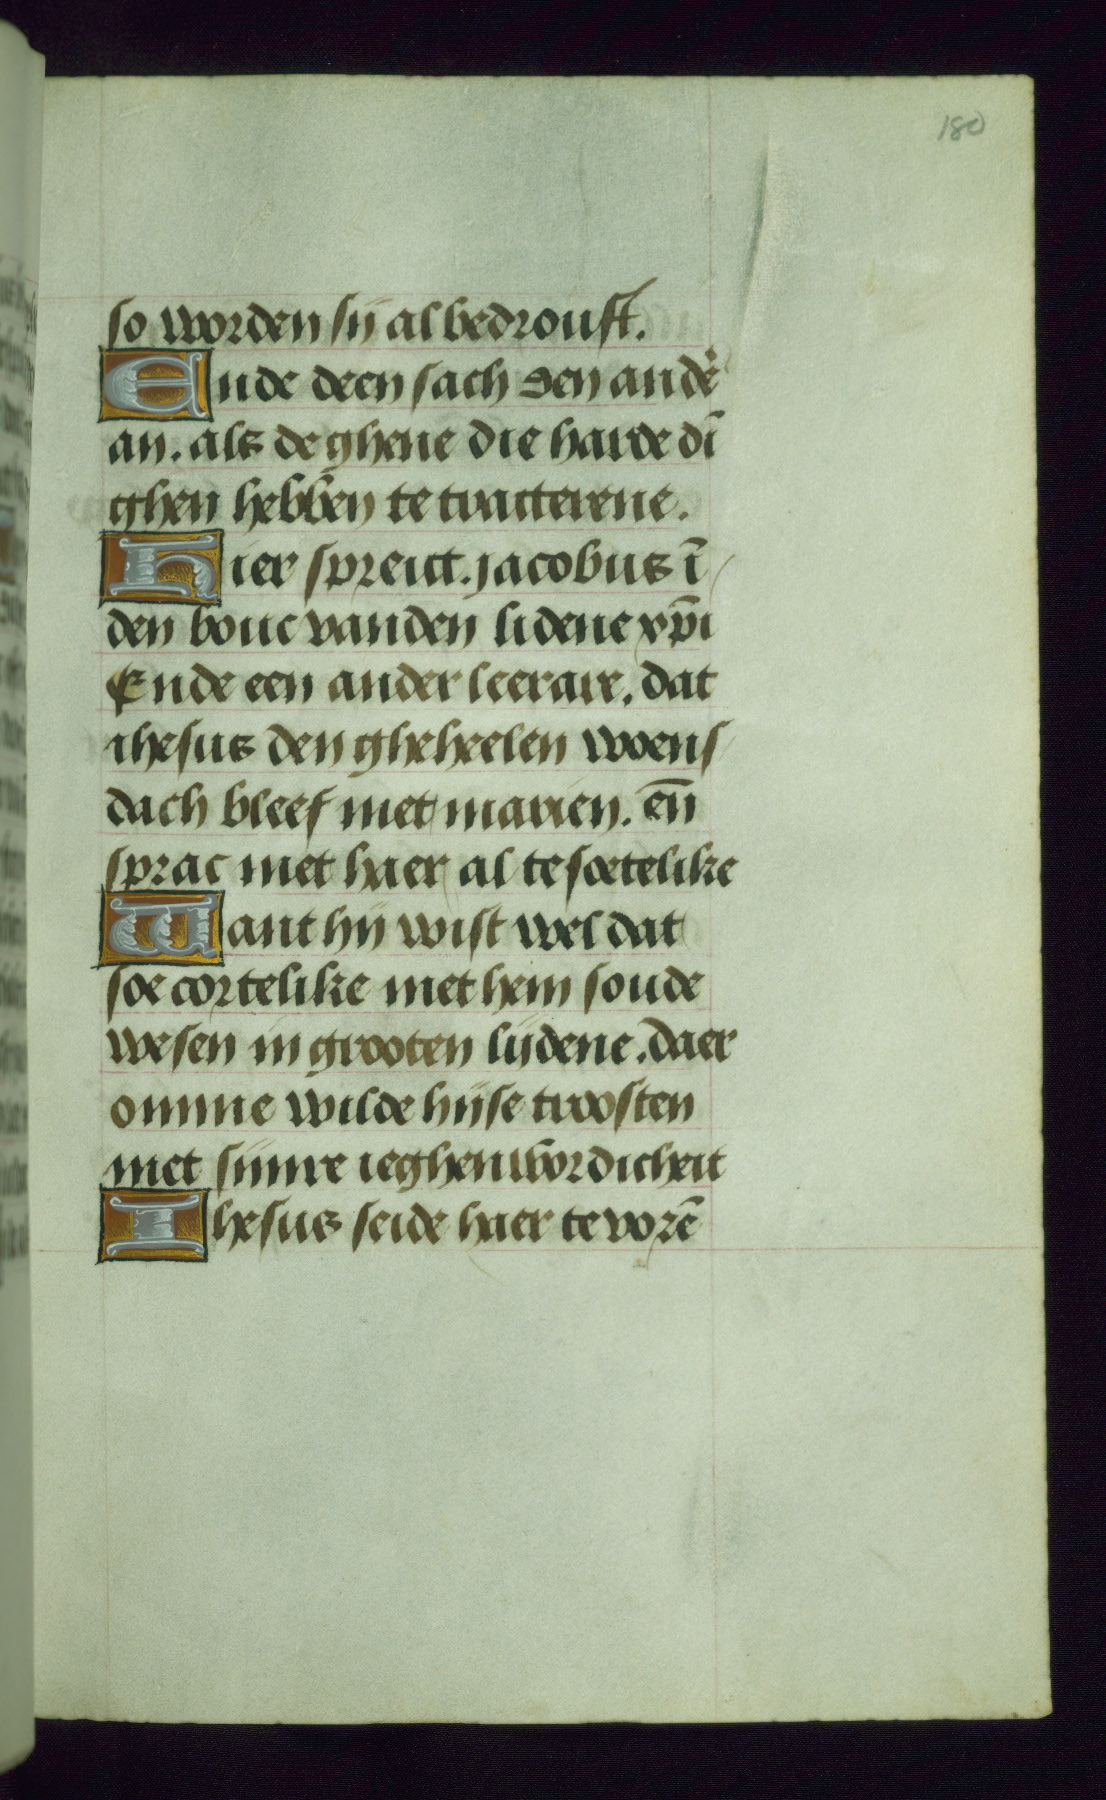 180
so worden sij al bedrouft.
Ende deen sach den andē
an. als de ghene die harde dī
ghen hebbēn te tracterene.
Hier spreict. jacobus ī
den bouc vanden lidene xp̄i
Ende een ander leerare, dat
ihesus den gheheelen woens
dach bleef met marien. en̄
sprac met haer al te soetelike
Want hij wist wel dat
soe cortelike met hem soude
wesen in grooten lijdene. daer
omme wilde hijse troosten
met sijnre ieghenw̄ordicheit
Ihesus seide haer te vorē